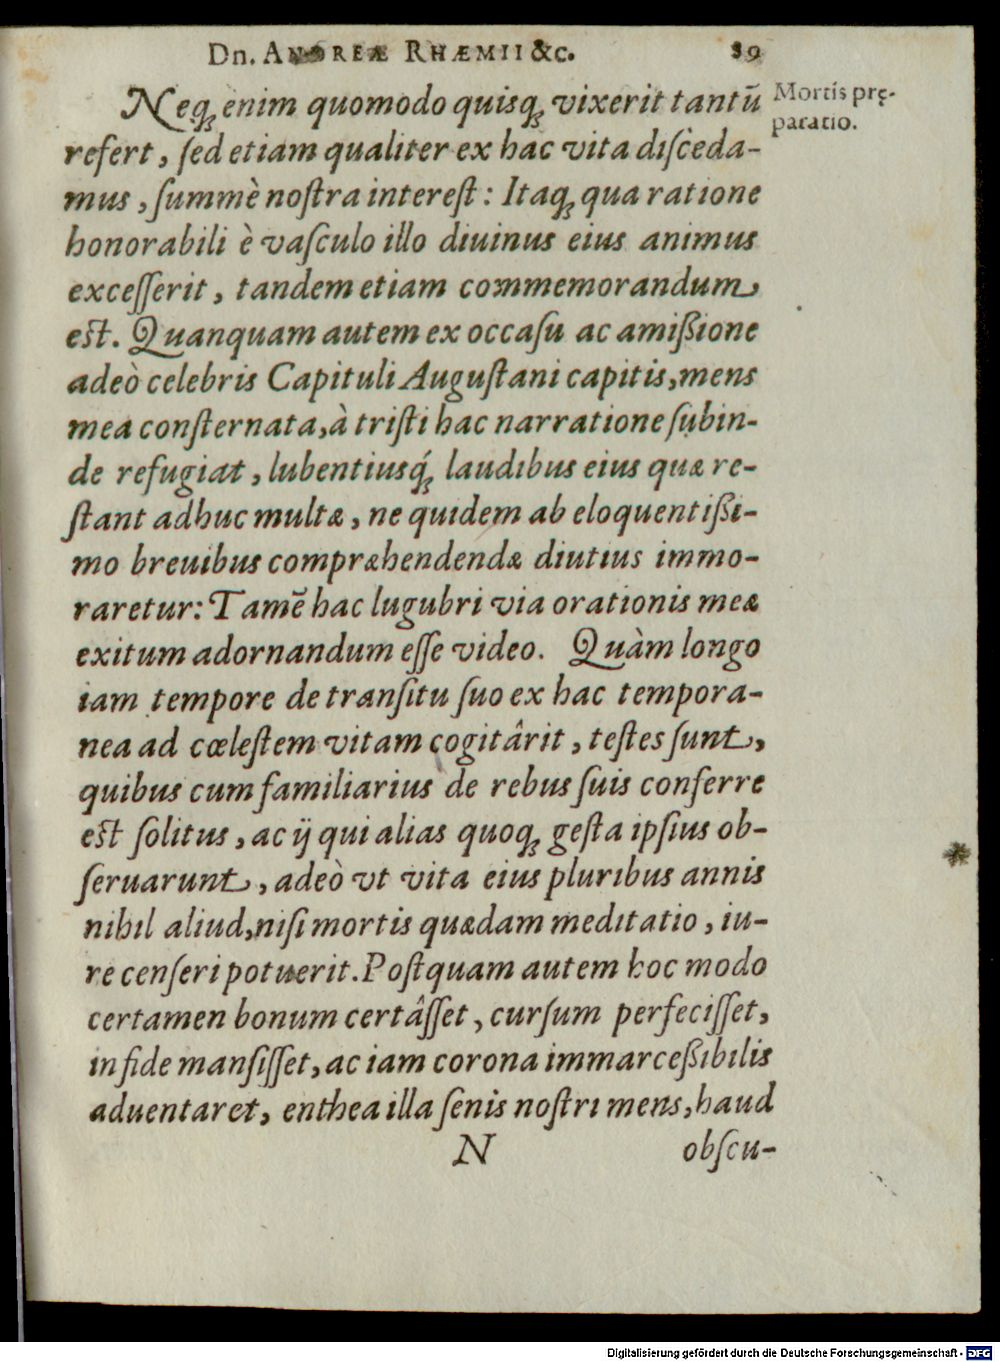 Dn. ANDREÆ RHÆMII &c. 89
Neq; enim quomodo quisq; vixerit tantũ
Mortis prę-
paratio.
refert, ſed etiam qualiter ex hac vita diſceda-
mus, ſummè noſtra intereſt: Itaq; qua ratione
honorabili è vaſculo illo diuinus eius animus
exceſſerit, tandem etiam commemorandum
est. Quanquam autem ex occaſu ac amißione
adeò celebris Capituli Auguſtani capitis, mens
mea conſternata, à triſti hac narratione ſubin-
de refugiat, lubentiusq́; laudibus eius quæ re-
ſtant adhuc multæ, ne quidem ab eloquentißi-
mo breuibus compræhendendæ diutius immo-
raretur: Tamẽ hac lugubri via orationis meæ
exitum adornandum eſſe video. Quàm longo
iam tempore de tranſitu ſuo ex hac tempora-
nea ad cœleſtem vitam cogitârit, teſtes ſunt,
quibus cum familiarius de rebus ſuis conferre
est ſolitus, ac ij qui alias quoq; geſta ipſius ob-
ſeruarunt, adeò vt vita eius pluribus annis
nihil aliud, niſi mortis quædam meditatio, iu-
re cenſeri potuerit. Poſtquam autem hoc modo
certamen bonum certâſſet, curſum perfeciſſet,
in fide manſiſſet, ac iam corona immarceßibilis
aduentaret, enthea illa ſenis noſtri mens, haud
N obſcu-
Digitalisierung gefördert durch die Deutsche Forschungsgemeinschaft - DFG